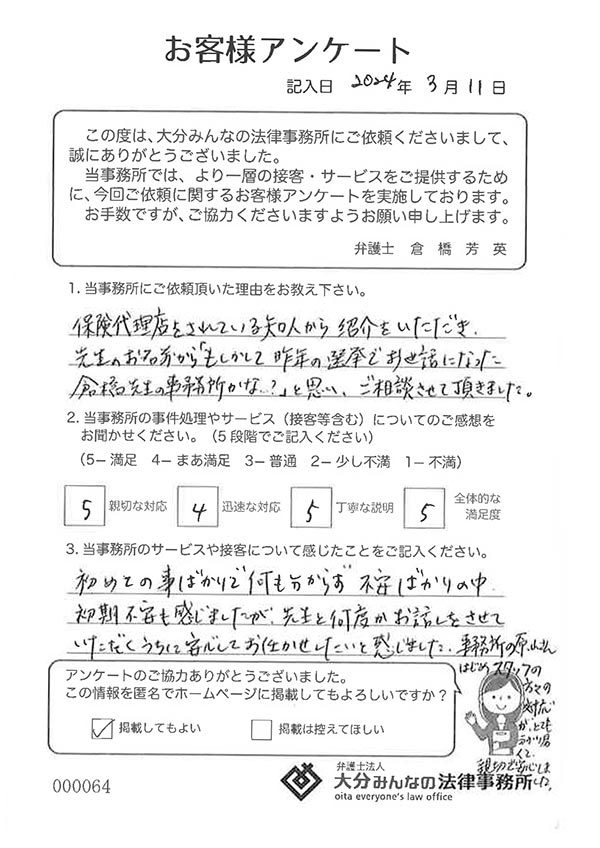 お客様アンケート
記入日 2024年 3月 11日
この度は、大分みんなの法律事務所にご依頼くださいまして、
誠にありがとうございました。
当事務所では、より一層の接客・サービスをご提供するため
に、今回ご依頼に関するお客様アンケートを実施しております。
お手数ですが、ご協力くださいますようお願い申し上げます。
弁護士 倉橋芳英
1. 当事務所にご依頼頂いた理由をお教え下さい。
保険代理店をされている知人から紹介をいただき、
先生のお名前から「もしかして昨年の選挙でお世話になった
倉橋先生の事務所かな?」と思い、ご相談させて頂きました。
2. 当事務所の事件処理やサービス（接客等含む）についてのご感想を
お聞かせください。（5段階でご記入ください）
（5－満足 4－まあ満足 3－普通 2－少し不満 1－不満）
5 親切な対応 4 迅速な対応 5 丁寧な説明 5 全体的な
満足度
3. 当事務所のサービスや接客について感じたことをご記入ください。
初めての事ばかりで何も分からず 不安ばかりの中
初期不安も感じましたが、先生と何度かお話しをさせて
いただくうちに安心してお任せしたいと感じました。事務所の原山さん
はじめスタッフの
方々の
対応
が、とても
分かり易
くて、
親切で安心しま
した。
アンケートのご協力ありがとうございました。
この情報を匿名でホームページに掲載してもよろしいですか？
掲載してもよい 掲載は控えてほしい
000064
弁護士法人
大分みんなの法律事務所
oita everyone's law office